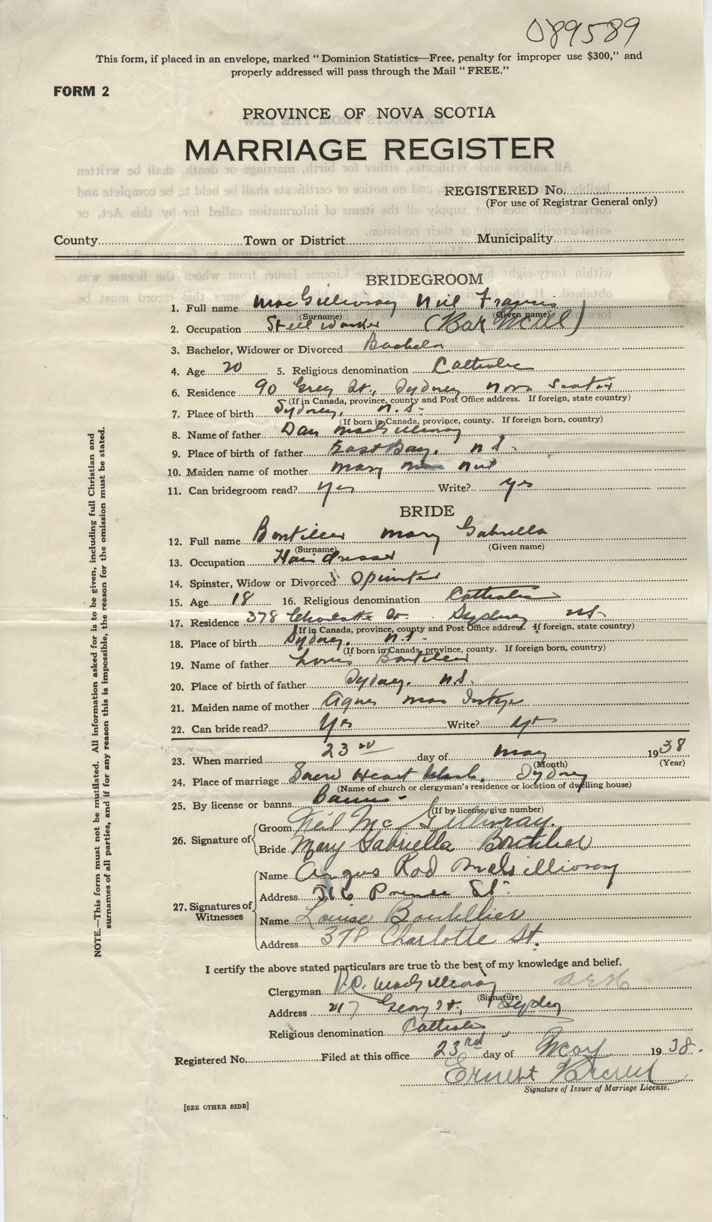 089589
This form, if placed in an envelope, marked "Dominion Statistics—Free, penalty for improper use $300," and
properly addressed will pass through the Mail "FREE."
FORM 2
PROVINCE OF NOVA SCOTIA
MARRIAGE REGISTER
REGISTERED No.
(For use of Registrar General only)
County Town or District Municipality
BRIDEGROOM
1. Full name MacGillivray Neil Francis
(Surname) (Given name)
2. Occupation Steel worker (Bar Mill)
3. Bachelor, Widower or Divorced Bachelor
4. Age 20 5. Religious denomination Catholic
6. Residence 90 Grey St., Sydney Nova Scotia
(If in Canada, province, county and Post Office address. If foreign, state country)
7. Place of birth Sydney, N.S.
(If born in Canada, province, county. If foreign born, country)
8. Name of father Dan MacGillivray
9. Place of father East Bay, N.S.
10. Maiden name of mother Mary
11. Can bridegroom read? Yes Write? Yes
BRIDE
12. Full name Boutilier Mary Gabriella
(Surname) (Given name)
13. Occupation Hairdresser
14. Spinster, Widow or Divorced Spinster
15. Age 18 16. Religious denomination Catholic
17. Residence 378 Charlotte St. Sydney N.S.
(If in Canada, province, county and Post Office address. If foreign, state country)
18. Place of birth Sydney, N.S.
(If born in Canada, province, county. If foreign born, country)
19. Name of father Boutilier
20. Place of birth of father Sydney, N.S.
21. Maiden name of mother Agnes
22. Can bride read? Yes Write? Yes
23. When married 23rd day of May 1938
(Month) (Year)
24. Place of marriage Sacred Heart Church, Sydney
(Name of church or clergyman's residence or location of dwelling house)
25. By license or banns Banns
(If by license, give number)
26. Signature of Groom Neil McGillivray
Bride Mary Gabriella Boutilier
27. Signatures of Witnesses
Name Angus Rod McGillivray
Address 366 Prince St.
Name Louise Boutillier
Address 378 Charlotte St.
I certify the above stated particulars are true to the best of my knowledge and belief.
Clergyman MacGillivray
(Signature)
Address 217 George St., Sydney
Religious denomination Catholic
Registered No. Filed at this office 23rd day of May 1938.
Ernest
Signature of Issuer of Marriage License.
[SEE OTHER SIDE]
NOTE.—This form must not be mutilated. All information asked for is to be given, including full Christian and
surnames of all parties, and if for any reason this is impossible, the reason for the omission must be stated.